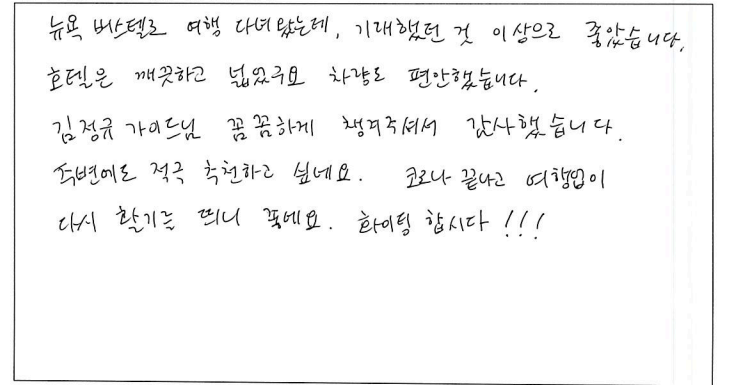 뉴욕 버스텔로 여행 다녀왔는데, 기대했던 것 이상으로 좋았습니다.
호텔은 깨끗하고 넓었구요 차량도 편안했습니다.
김정규 가이드님 꼼꼼하게 챙겨주셔서 감사했습니다.
주변에도 적극 추천하고 싶네요. 코로나 끝나고 여행업이
다시 활기를 띄니 좋네요. 화이팅 합시다!!!